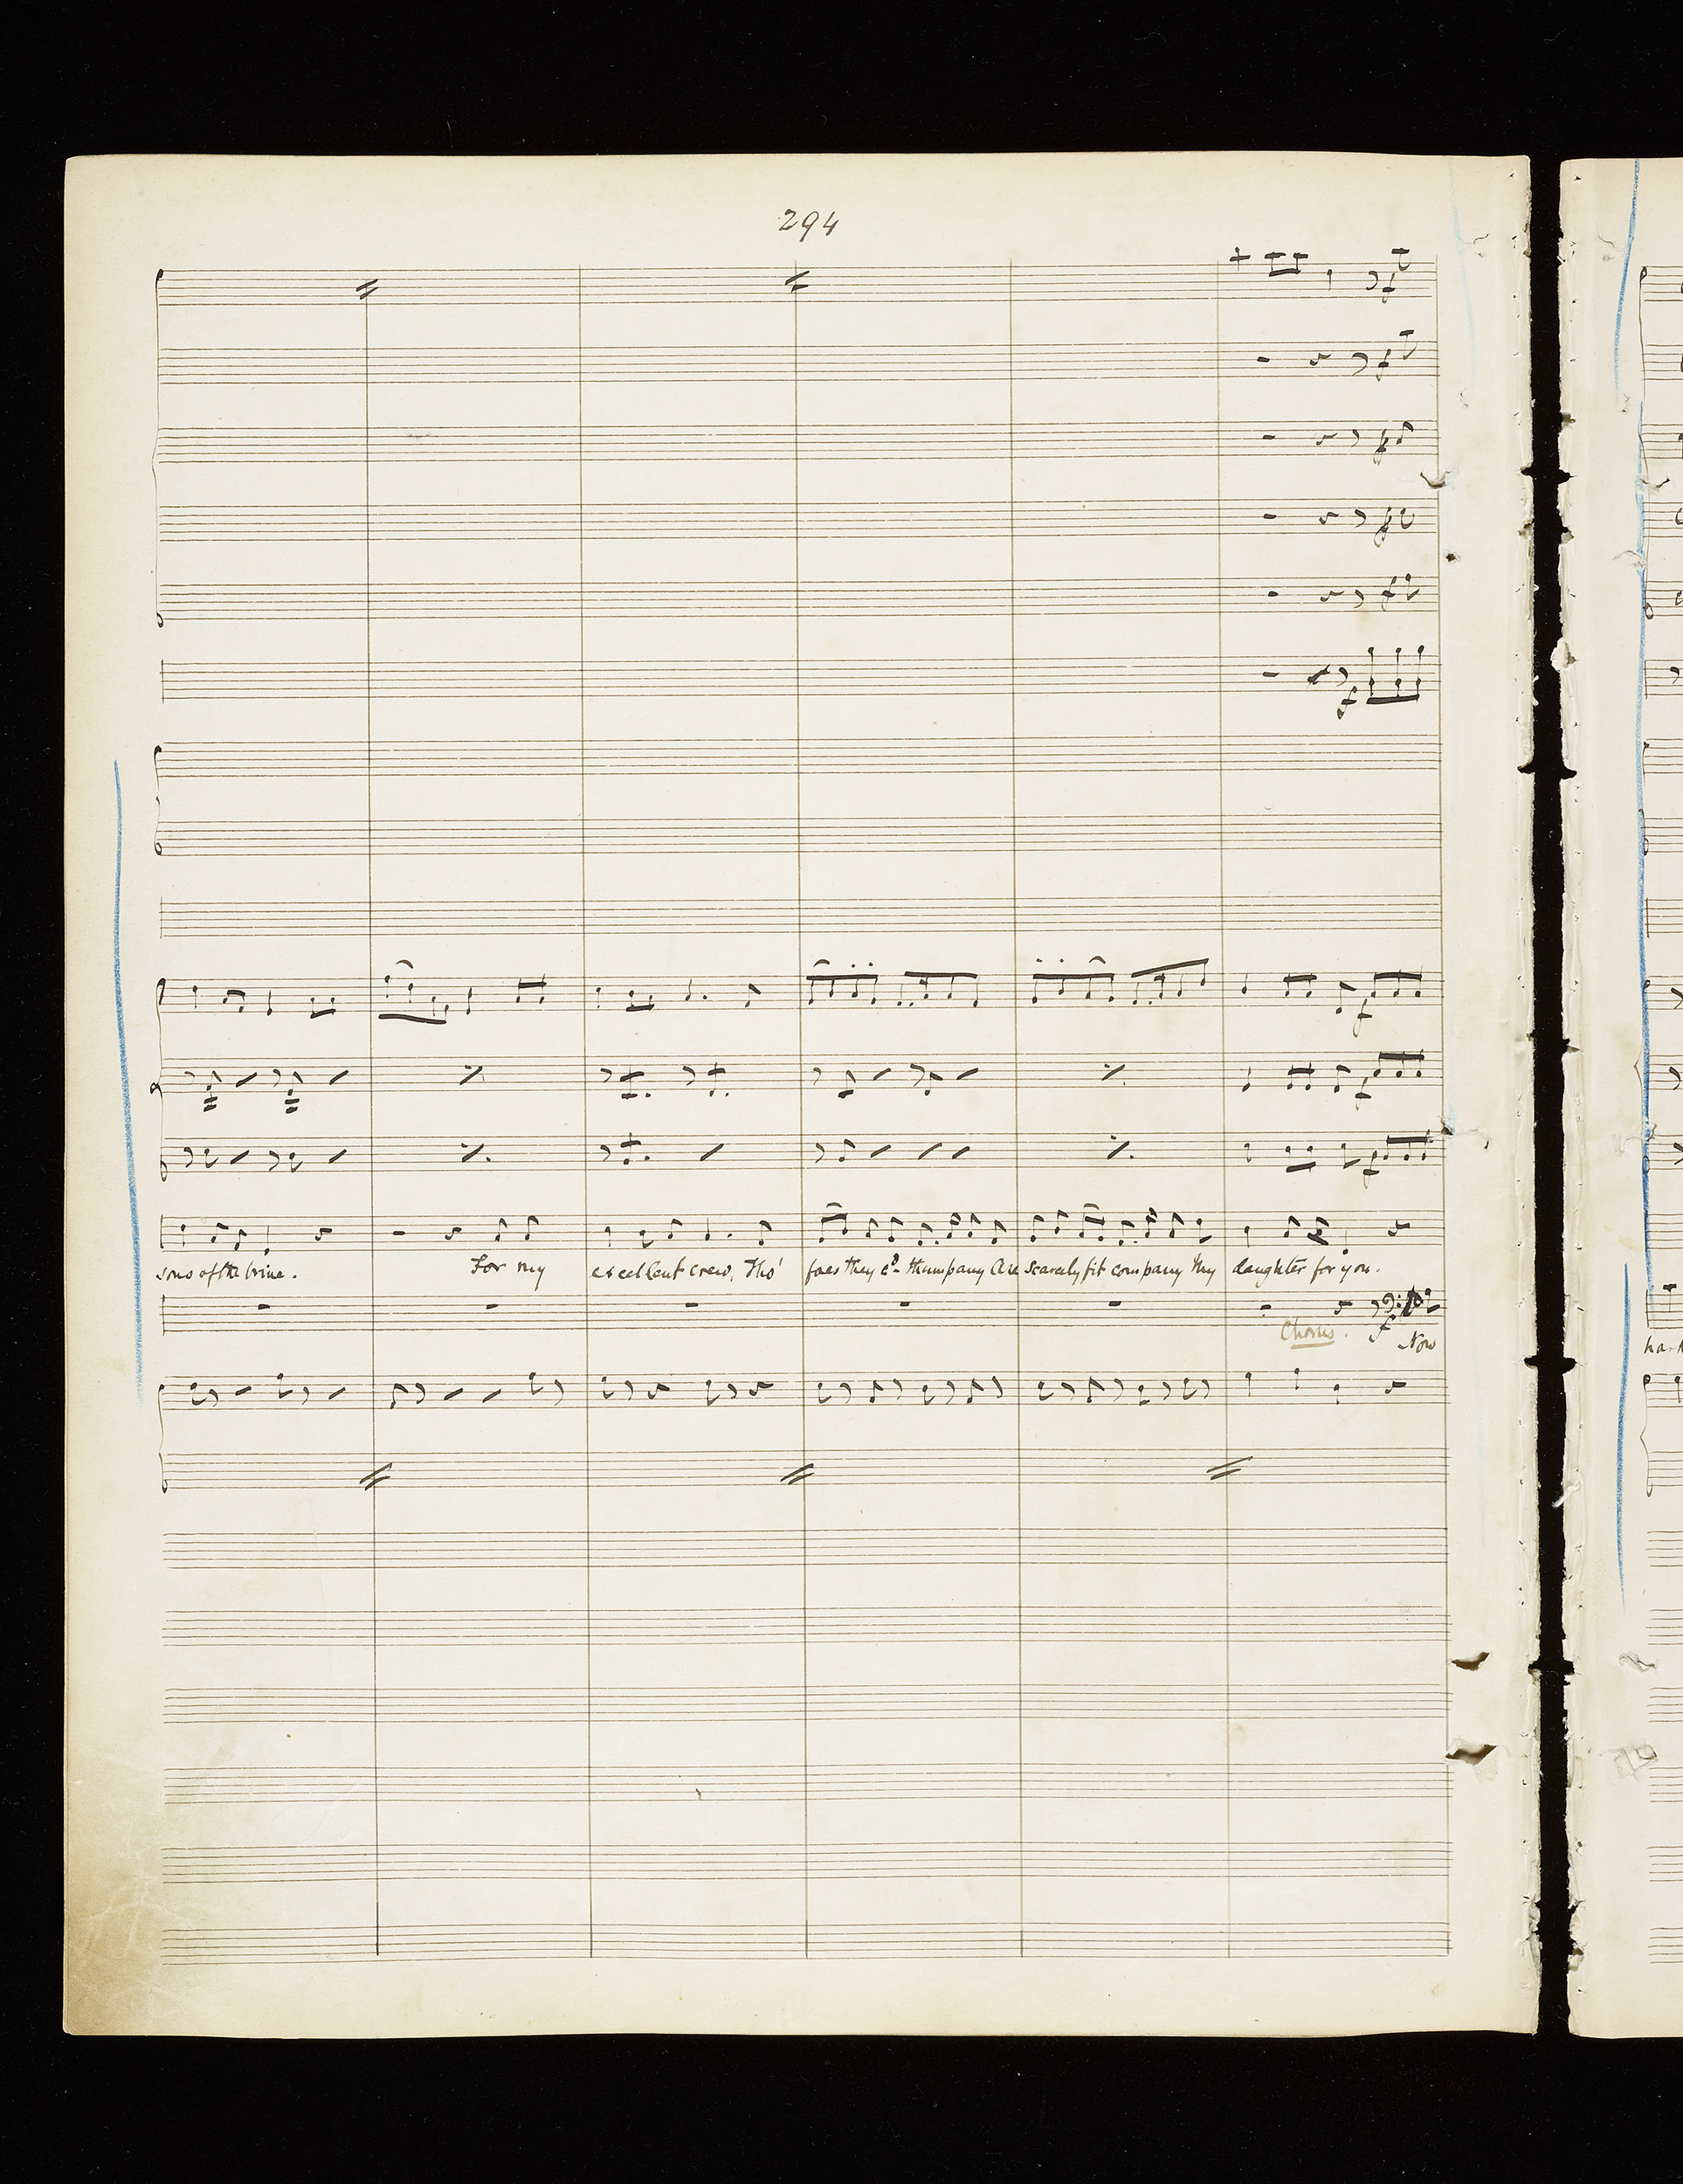 294
sons of the brine. For my excellent crew, Tho' foes they cd. thump any Are scarcely fit company My daughter for you.
Chorus. f Now